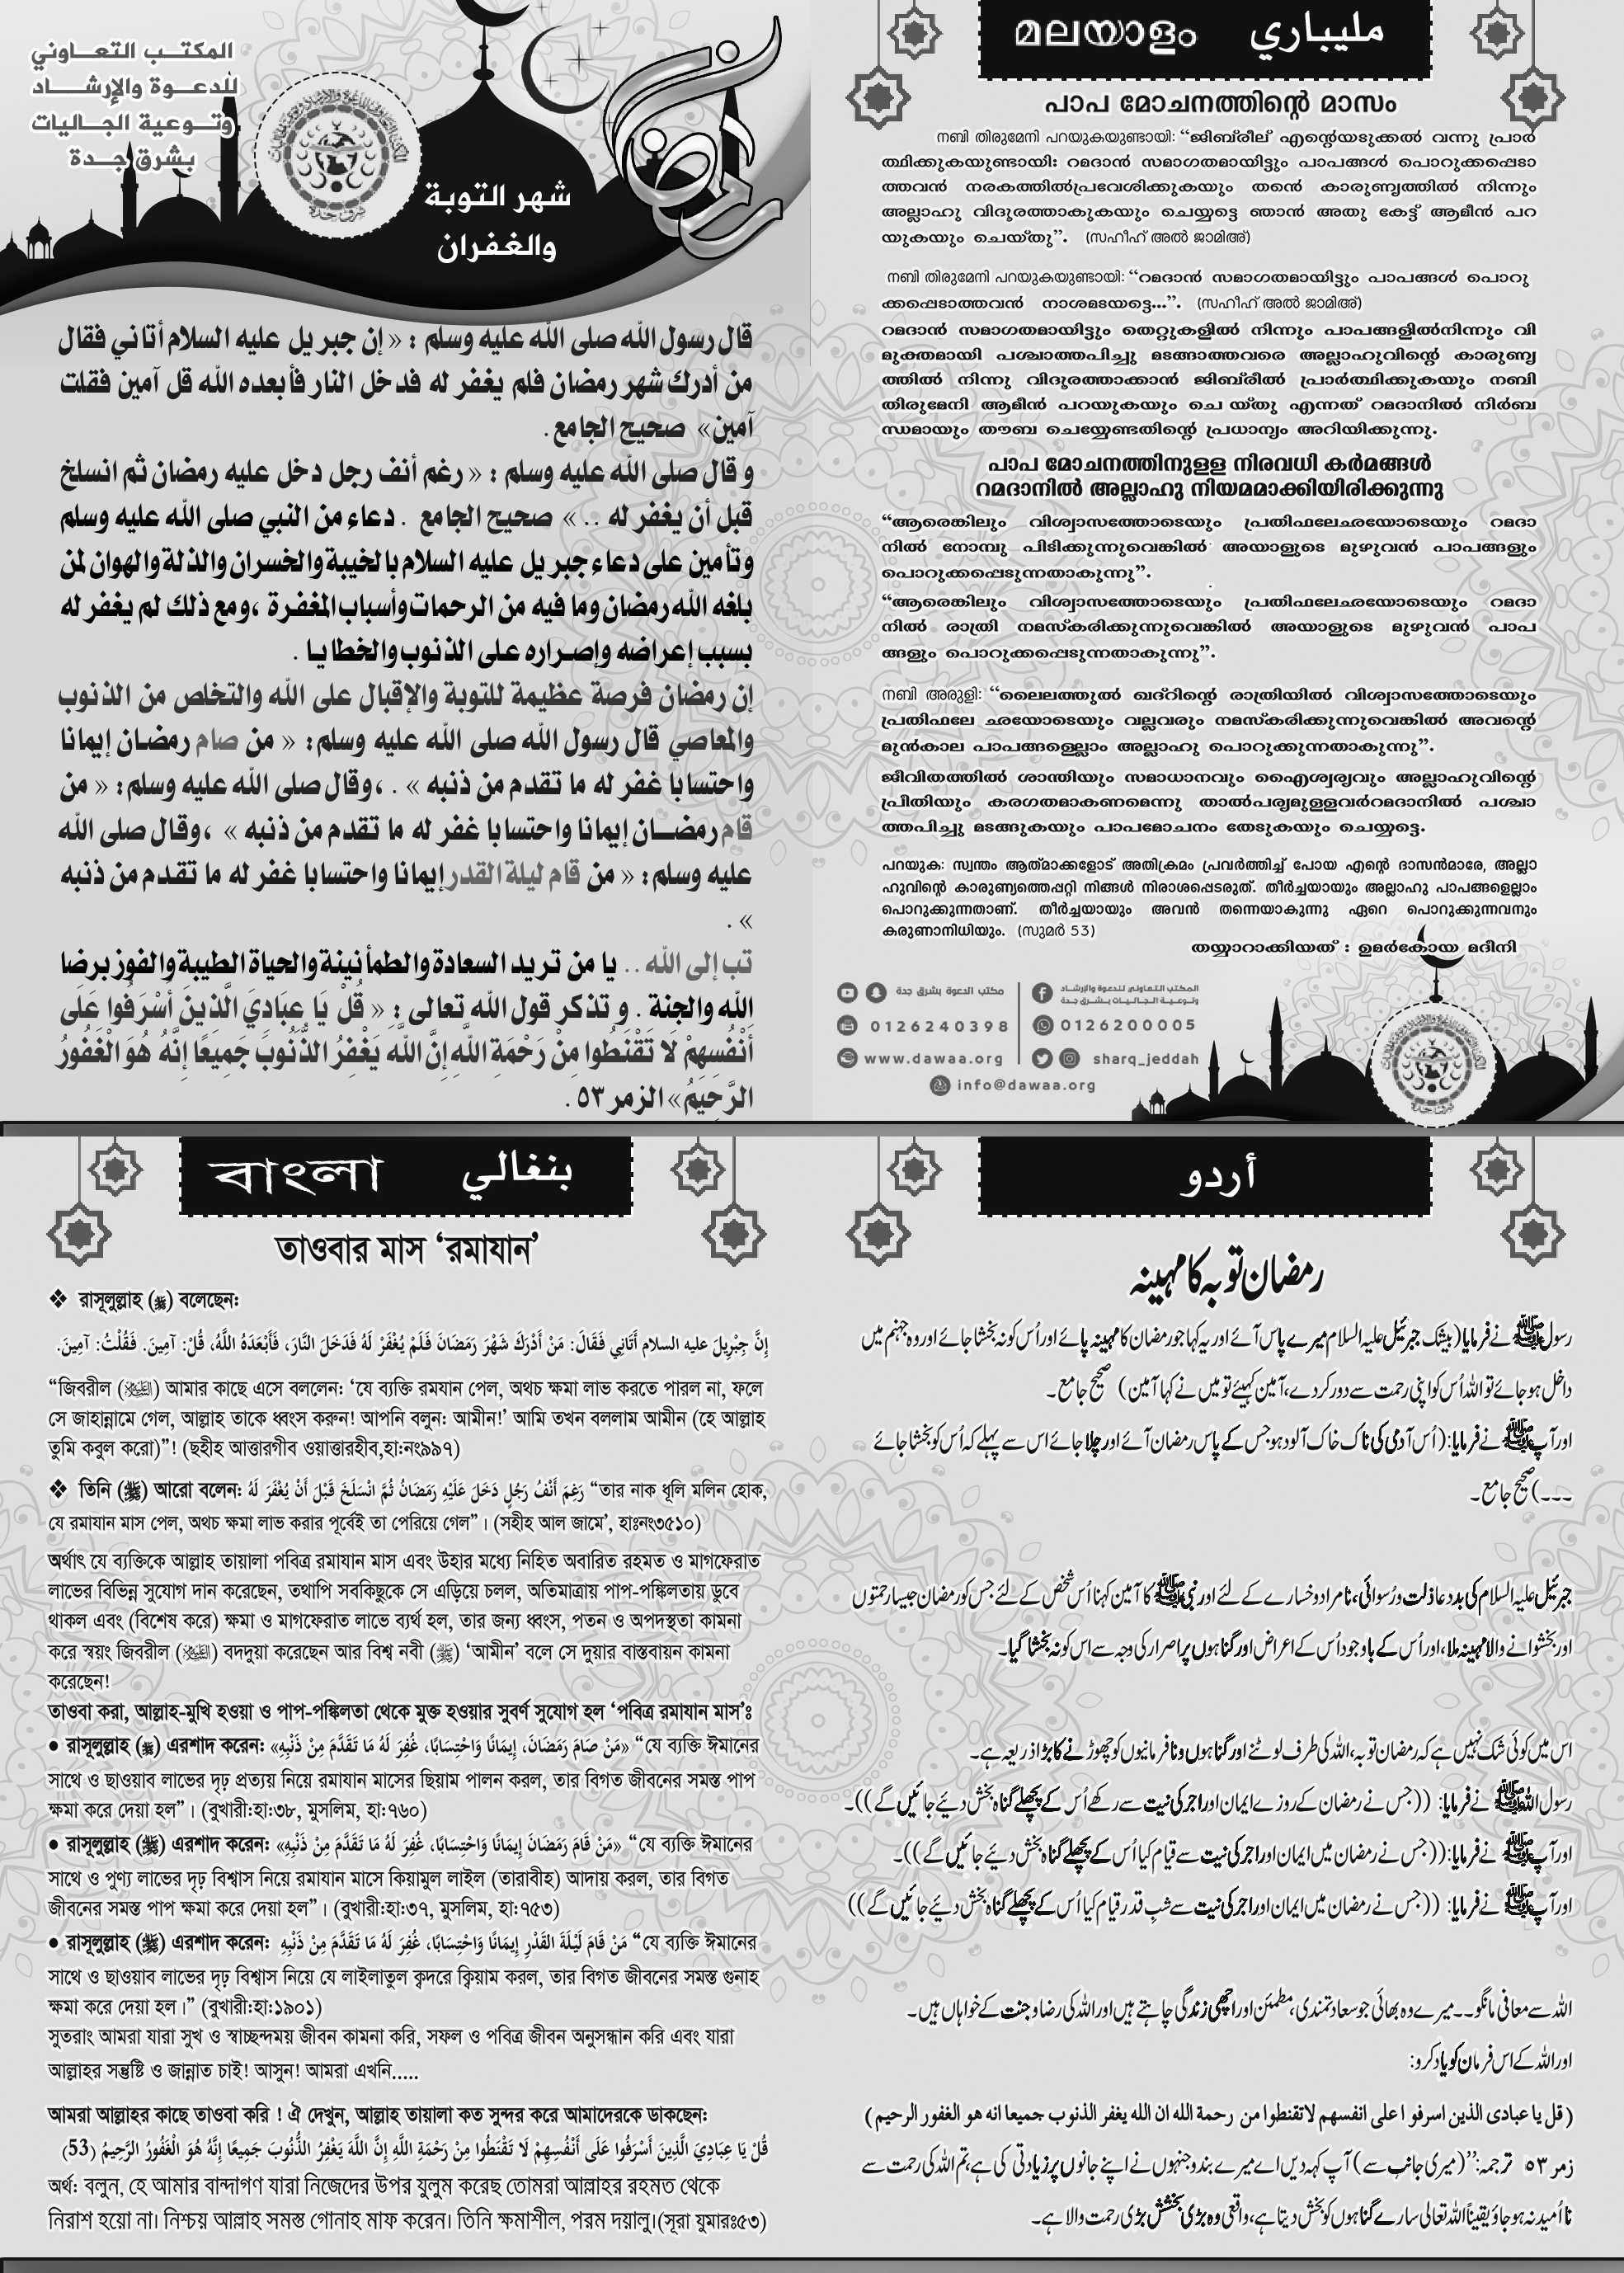 المكتب التعاوني
للدعوة والإرشاد
وتوعية الجاليات
بشرق جدة
رمضان
شهر التوبة
والغفران
قال رسول الله صلى الله عليه وسلم : « إن جبريل عليه السلام أتاني فقال
من أدرك شهر رمضان فلم يغفر له فدخل النار فأبعده الله قل آمين فقلت
آمين» صحيح الجامع .
و قال صلى الله عليه وسلم : « رغم أنف رجل دخل عليه رمضان ثم انسلخ
قبل أن يغفر له .. » صحيح الجامع . دعاء من النبي صلى الله عليه وسلم
وتأمين على دعاء جبريل عليه السلام بالخيبة والخسران والذلة والهوان لمن
بلغه الله رمضان وما فيه من الرحمات وأسباب المغفرة ،ومع ذلك لم يغفر له
بسبب إعراضه وإصراره على الذنوب والخطايا .
إن رمضان فرصة عظيمة للتوبة والإقبال على الله والتخلص من الذنوب
والمعاصي قال رسول الله صلى الله عليه وسلم: « من صام رمضان إيمانا
واحتسابا غفر له ما تقدم من ذنبه » . ،وقال صلى الله عليه وسلم: « من
قام رمضان إيمانا واحتسابا غفر له ما تقدم من ذنبه » ،وقال صلى الله
عليه وسلم: « من قام ليلة القدر إيمانا واحتسابا غفر له ما تقدم من ذنبه
» .
تب إلى الله .. يا من تريد السعادة والطمأنينة والحياة الطيبة والفوز برضا
الله والجنة . و تذكر قول الله تعالى : « قُلْ يَا عِبَادِيَ الَّذِينَ أَسْرَفُوا عَلَى
أَنْفُسِهِمْ لَا تَقْنَطُوا مِنْ رَحْمَةِ اللَّهِ إِنَّ اللَّهَ يَغْفِرُ الذُّنُوبَ جَمِيعًا إِنَّهُ هُوَ الْغَفُورُ
الرَّحِيمُ» الزمر ٥٣ .
മലയാളം مليباري
പാപ മോചനത്തിന്റെ മാസം
നബി തിരുമേനി പറയുകയുണ്ടായി: “ജിബ്‌രീല് എന്റെയടുക്കൽ വന്നു പ്രാർ
ത്ഥിക്കുകയുണ്ടായി: റമദാൻ സമാഗതമായിട്ടും പാപങ്ങൾ പൊറുക്കപ്പെടാ
ത്തവൻ നരകത്തിൽപ്രവേശിക്കുകയും തന്റെ കാരുണ്യത്തിൽ നിന്നും
അല്ലാഹു വിദൂരത്താകുകയും ചെയ്യട്ടെ ഞാൻ അതു കേട്ട് ആമീൻ പറ
യുകയും ചെയ്തു”. (സഹീഹ് അൽ ജാമിഅ്)
നബി തിരുമേനി പറയുകയുണ്ടായി: “റമദാൻ സമാഗതമായിട്ടും പാപങ്ങൾ പൊറു
ക്കപ്പെടാത്തവൻ നാശമടയട്ടെ...”. (സഹീഹ് അൽ ജാമിഅ്)
റമദാൻ സമാഗതമായിട്ടും തെറ്റുകളിൽ നിന്നും പാപങ്ങളിൽനിന്നും വി
മുക്തമായി പശ്ചാത്തപിച്ചു മടങ്ങാത്തവരെ അല്ലാഹുവിന്റെ കാരുണ്യ
ത്തിൽ നിന്നു വിദൂരത്താക്കാൻ ജിബ്‌രീൽ പ്രാർത്ഥിക്കുകയും നബി
തിരുമേനി ആമീൻ പറയുകയും ചെ യ്തു എന്നത് റമദാനിൽ നിർബ
ന്ധമായും തൗബ ചെയ്യേണ്ടതിന്റെ പ്രധാന്യം അറിയിക്കുന്നു.
പാപ മോചനത്തിനുളള നിരവധി കർമങ്ങൾ
റമദാനിൽ അല്ലാഹു നിയമമാക്കിയിരിക്കുന്നു
“ആരെങ്കിലും വിശ്വാസത്തോടെയും പ്രതിഫലേഛയോടെയും റമദാ
നിൽ നോമ്പു പിടിക്കുന്നുവെങ്കിൽ അയാളുടെ മുഴുവൻ പാപങ്ങളും
പൊറുക്കപ്പെടുന്നതാകുന്നു”.
“ആരെങ്കിലും വിശ്വാസത്തോടെയും പ്രതിഫലേഛയോടെയും റമദാ
നിൽ രാത്രി നമസ്കരിക്കുന്നുവെങ്കിൽ അയാളുടെ മുഴുവൻ പാപ
ങ്ങളും പൊറുക്കപ്പെടുന്നതാകുന്നു”.
നബി അരുളി: “ലൈലത്തുൽ ഖദ്‌റിന്റെ രാത്രിയിൽ വിശ്വാസത്തോടെയും
പ്രതിഫലേ ഛയോടെയും വല്ലവരും നമസ്കരിക്കുന്നുവെങ്കിൽ അവന്റെ
മുൻകാല പാപങ്ങളെല്ലാം അല്ലാഹു പൊറുക്കുന്നതാകുന്നു”.
ജീവിതത്തിൽ ശാന്തിയും സമാധാനവും ഐശ്വര്യവും അല്ലാഹുവിന്റെ
പ്രീതിയും കരഗതമാകണമെന്നു താൽപര്യമുള്ളവർറമദാനിൽ പശ്ചാ
ത്തപിച്ചു മടങ്ങുകയും പാപമോചനം തേടുകയും ചെയ്യട്ടെ.
പറയുക: സ്വന്തം ആത്മാക്കളോട് അതിക്രമം പ്രവർത്തിച്ച് പോയ എന്റെ ദാസൻമാരേ, അല്ലാ
ഹുവിന്റെ കാരുണ്യത്തെപ്പറ്റി നിങ്ങൾ നിരാശപ്പെടരുത്. തീർച്ചയായും അല്ലാഹു പാപങ്ങളെല്ലാം
പൊറുക്കുന്നതാണ്. തീർച്ചയായും അവൻ തന്നെയാകുന്നു ഏറെ പൊറുക്കുന്നവനും
കരുണാനിധിയും. (സുമർ 53)
തയ്യാറാക്കിയത് : ഉമർകോയ മദീനി
مكتب الدعوة بشرق جدة
المكتب التعاوني للدعوة والإرشاد
وتوعية الجاليات بشرق جدة
0126240398
0126200005
www.dawaa.org
sharq_jeddah
info@dawaa.org
বাংলা بنغالي
তাওবার মাস ‘রমাযান’
❖ রাসূলুল্লাহ (ﷺ) বলেছেন:
إِنَّ جِبْرِيلَ عليه السلام أَتَانِي فَقَالَ: مَنْ أَدْرَكَ شَهْرَ رَمَضَانَ فَلَمْ يُغْفَرْ لَهُ فَدَخَلَ النَّارَ، فَأَبْعَدَهُ اللَّهُ، قُلْ: آمِينَ. فَقُلْتُ: آمِينَ.
“জিবরীল (ﷺ) আমার কাছে এসে বললেন: ‘যে ব্যক্তি রমযান পেল, অথচ ক্ষমা লাভ করতে পারল না, ফলে
সে জাহান্নামে গেল, আল্লাহ তাকে ধ্বংস করুন! আপনি বলুন: আমীন!’ আমি তখন বললাম আমীন (হে আল্লাহ
তুমি কবুল করো)”! (ছহীহ আত্তারগীব ওয়াত্তারহীব,হা:নং৯৯৭)
❖ তিনি (ﷺ) আরো বলেন: رَغِمَ أَنْفُ رَجُلٍ دَخَلَ عَلَيْهِ رَمَضَانُ ثُمَّ انْسَلَخَ قَبْلَ أَنْ يُغْفَرَ لَهُ “তার নাক ধূলি মলিন হোক,
যে রমাযান মাস পেল, অথচ ক্ষমা লাভ করার পূর্বেই তা পেরিয়ে গেল”। (সহীহ আল জামে’, হাঃনং৩৫১০)
অর্থাৎ যে ব্যক্তিকে আল্লাহ তায়ালা পবিত্র রমাযান মাস এবং উহার মধ্যে নিহিত অবারিত রহমত ও মাগফেরাত
লাভের বিভিন্ন সুযোগ দান করেছেন, তথাপি সবকিছুকে সে এড়িয়ে চলল, অতিমাত্রায় পাপ-পঙ্কিলতায় ডুবে
থাকল এবং (বিশেষ করে) ক্ষমা ও মাগফেরাত লাভে ব্যর্থ হল, তার জন্য ধ্বংস, পতন ও অপদস্থতা কামনা
করে স্বয়ং জিবরীল (ﷺ) বদদুয়া করেছেন আর বিশ্ব নবী (ﷺ) ‘আমীন’ বলে সে দুয়ার বাস্তবায়ন কামনা
করেছেন!
তাওবা করা, আল্লাহ-মুখি হওয়া ও পাপ-পঙ্কিলতা থেকে মুক্ত হওয়ার সুবর্ণ সুযোগ হল ‘পবিত্র রমাযান মাস’ঃ
● রাসূলুল্লাহ (ﷺ) এরশাদ করেন: «مَنْ صَامَ رَمَضَانَ، إِيمَانًا وَاحْتِسَابًا، غُفِرَ لَهُ مَا تَقَدَّمَ مِنْ ذَنْبِهِ» “যে ব্যক্তি ঈমানের
সাথে ও ছাওয়াব লাভের দৃঢ় প্রত্যয় নিয়ে রমাযান মাসের ছিয়াম পালন করল, তার বিগত জীবনের সমস্ত পাপ
ক্ষমা করে দেয়া হল”। (বুখারী:হা:৩৮, মুসলিম, হা:৭৬০)
● রাসূলুল্লাহ (ﷺ) এরশাদ করেন: «مَنْ قَامَ رَمَضَانَ إِيمَانًا وَاحْتِسَابًا، غُفِرَ لَهُ مَا تَقَدَّمَ مِنْ ذَنْبِهِ» “যে ব্যক্তি ঈমানের
সাথে ও পুণ্য লাভের দৃঢ় বিশ্বাস নিয়ে রমাযান মাসে কিয়ামুল লাইল (তারাবীহ) আদায় করল, তার বিগত
জীবনের সমস্ত পাপ ক্ষমা করে দেয়া হল”। (বুখারী:হা:৩৭, মুসলিম, হা:৭৫৩)
● রাসূলুল্লাহ (ﷺ) এরশাদ করেন: مَنْ قَامَ لَيْلَةَ القَدْرِ إِيمَانًا وَاحْتِسَابًا، غُفِرَ لَهُ مَا تَقَدَّمَ مِنْ ذَنْبِهِ “যে ব্যক্তি ঈমানের
সাথে ও ছাওয়াব লাভের দৃঢ় বিশ্বাস নিয়ে যে লাইলাতুল ক্বদরে ক্বিয়াম করল, তার বিগত জীবনের সমস্ত গুনাহ
ক্ষমা করে দেয়া হল।” (বুখারী:হা:১৯০১)
সুতরাং আমরা যারা সুখ ও স্বাচ্ছন্দময় জীবন কামনা করি, সফল ও পবিত্র জীবন অনুসন্ধান করি এবং যারা
আল্লাহর সন্তুষ্টি ও জান্নাত চাই! আসুন! আমরা এখনি.....
আমরা আল্লাহর কাছে তাওবা করি ! ঐ দেখুন, আল্লাহ তায়ালা কত সুন্দর করে আমাদেরকে ডাকছেন:
قُلْ يَا عِبَادِيَ الَّذِينَ أَسْرَفُوا عَلَى أَنْفُسِهِمْ لَا تَقْنَطُوا مِنْ رَحْمَةِ اللَّهِ إِنَّ اللَّهَ يَغْفِرُ الذُّنُوبَ جَمِيعًا إِنَّهُ هُوَ الْغَفُورُ الرَّحِيمُ (53)
অর্থ: বলুন, হে আমার বান্দাগণ যারা নিজেদের উপর যুলুম করেছ তোমরা আল্লাহর রহমত থেকে
নিরাশ হয়ো না। নিশ্চয় আল্লাহ সমস্ত গোনাহ মাফ করেন। তিনি ক্ষমাশীল, পরম দয়ালু।(সূরা যুমারঃ৫৩)
أردو
رمضان توبہ کا مہینہ
رسولﷺ نے فرمایا (بیشک جبرئیل علیہ السلام میرے پاس آئے اور یہ کہا جو رمضان کا مہینہ پائے اور اُس کو نہ بخشا جائے اور وہ جہنم میں
داخل ہو جائے تو اللہ اُس کو اپنی رحمت سے دور کر دے، آمین کہیئے تو میں نے کہا آمین) صحیح جامع۔
اور آپﷺ نے فرمایا: (اُس آدمی کی ناک خاک آلود ہو جس کے پاس رمضان آئے اور چلا جائے اس سے پہلے کہ اُس کو بخشا جائے
۔۔۔) صحیح جامع۔
جبرئیل علیہ السلام کی بددعا ذلت ورُسوائی، نامراد وخسارے کے لئے اور نبیﷺ کا آمین کہنا اُس شخص کے لئے جس کو رمضان جیسا رحمتوں
اور بخشوانے والا مہینہ ملا، اور اُس کے باوجود اُس کے اعراض اور گناہوں پر اصرار کی وجہ سے اس کو نہ بخشا گیا۔
اس میں کوئی شک نہیں ہے کہ رمضان توبہ، اللہ کی طرف لوٹنے اور گناہوں ونافرمانیوں کو چھوڑنے کا بڑا ذریعہ ہے۔
رسول اللہﷺ نے فرمایا: ((جس نے رمضان کے روزے ایمان اور اجر کی نیت سے رکھے اُس کے پچھلے گناہ بخش دیئے جائیں گے))۔
اور آپﷺ نے فرمایا: ((جس نے رمضان میں ایمان اور اجر کی نیت سے قیام کیا اُس کے پچھلے گناہ بخش دیئے جائیں گے))۔
اور آپﷺ نے فرمایا: ((جس نے رمضان میں ایمان اور اجر کی نیت سے شبِ قدر قیام کیا اُس کے پچھلے گناہ بخش دیئے جائیں گے))
اللہ سے معافی مانگو۔۔ میرے وہ بھائی جو سعادتمندی، مطمئن اور اچھی زندگی چاہتے ہیں اور اللہ کی رضا و جنت کے خواہاں ہیں۔
اور اللہ کے اس فرمان کو یاد کرو:
(قل يا عبادى الذين اسرفوا على انفسهم لا تقنطوا من رحمة الله ان الله يغفر الذنوب جميعا انه هو الغفور الرحيم)
زمر ٥٣ ترجمہ: ”(میری جانب سے) آپ کہہ دیں اے میرے بندو جنہوں نے اپنے جانوں پر زیادتی کی ہے، تم اللہ کی رحمت سے
نا اُمید نہ ہو جاؤ یقیناً اللہ تعالی سارے گناہوں کو بخش دیتا ہے، واقعی وہ بڑی بخشش بڑی رحمت والا ہے۔